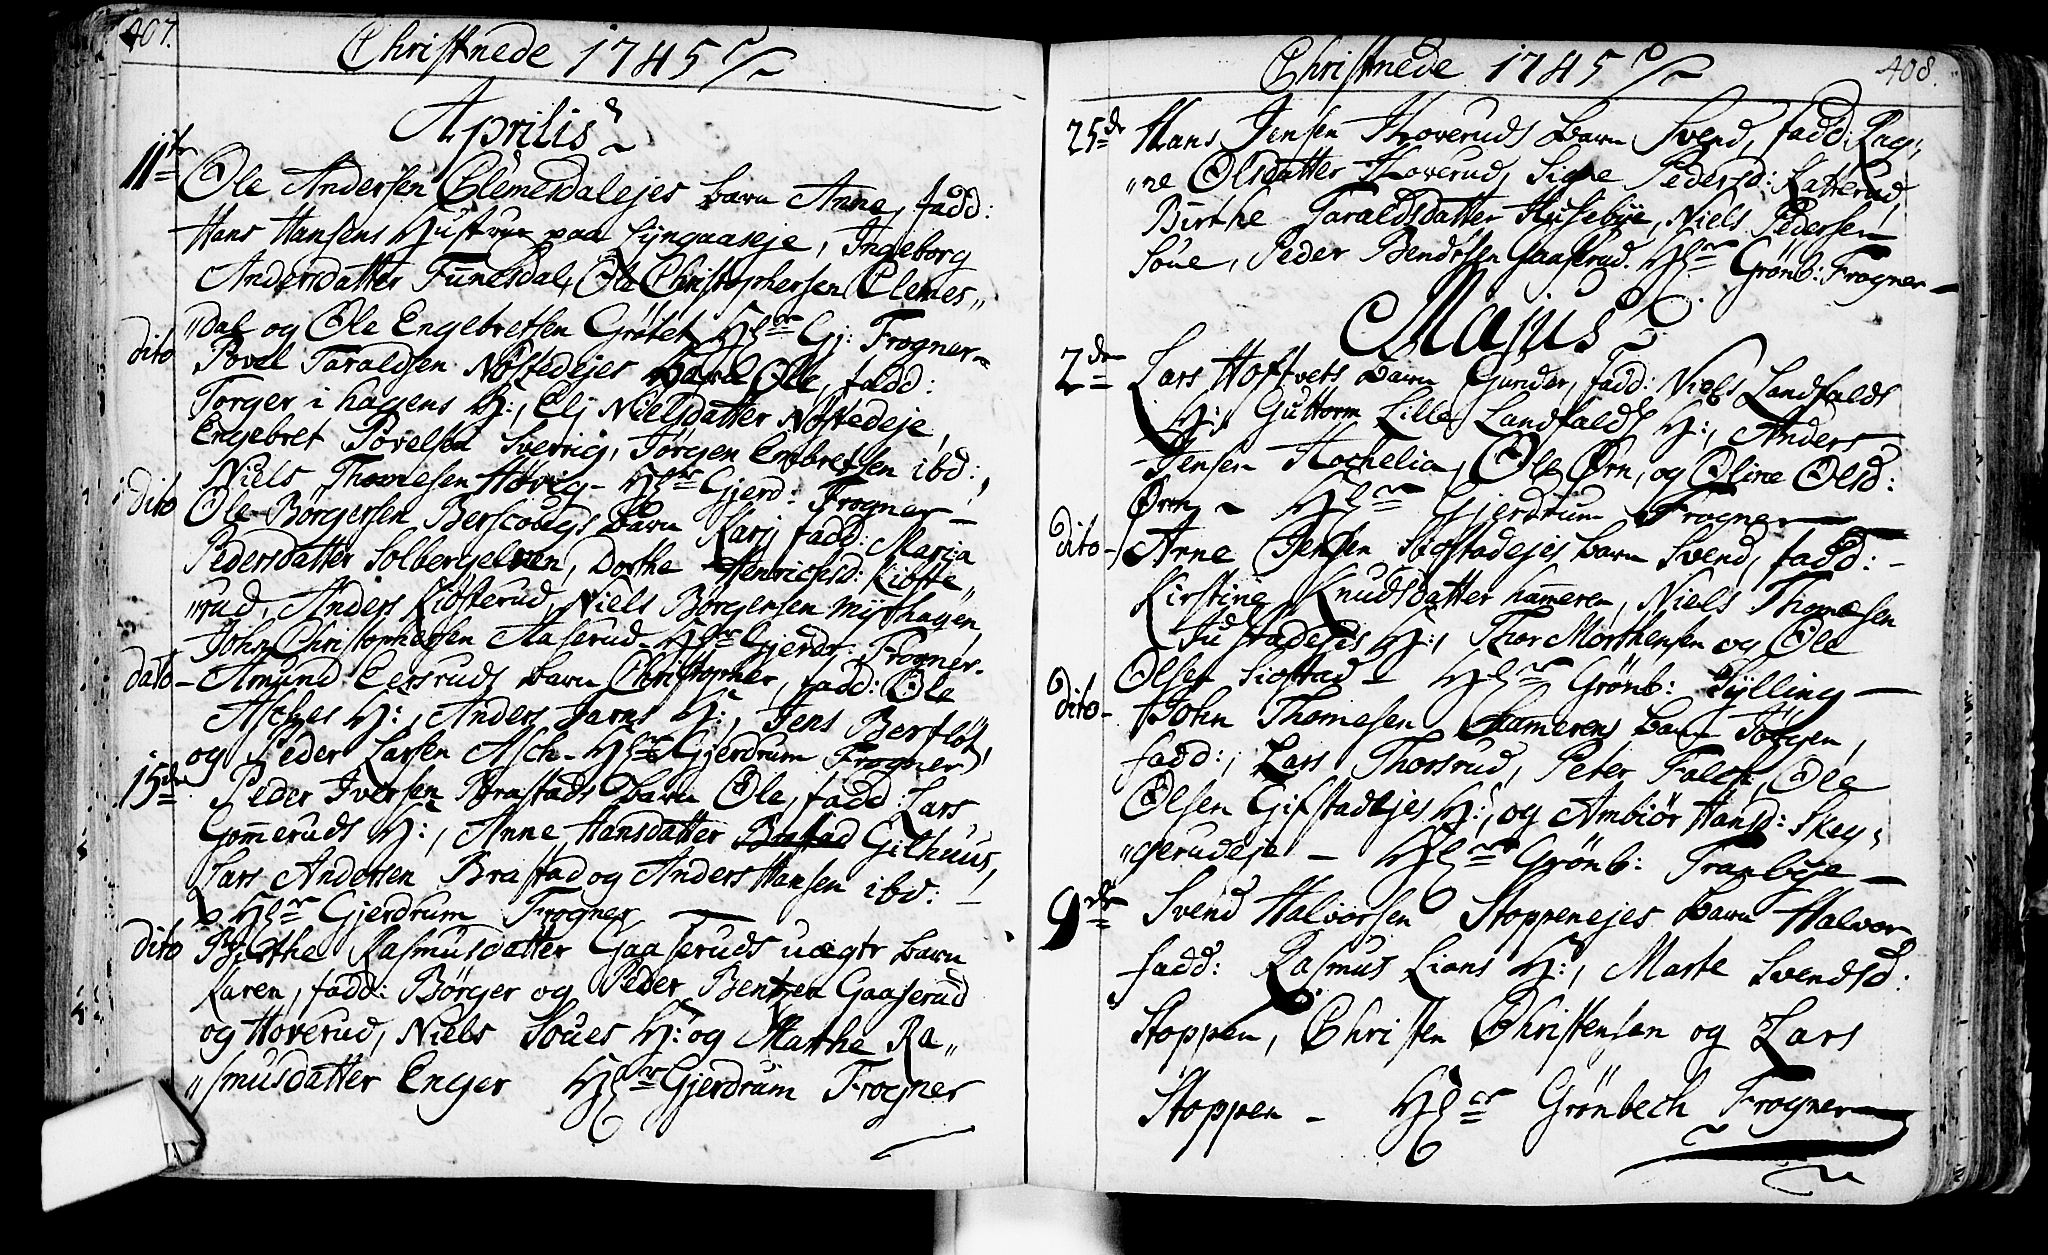 407.
Christnede 1745
Aprilis
11te Ole Andersen Clemesdalejes barn Anne, fadd:
Hans Hansens Hustrue paa Lyngaaseje, Ingeborg
Andersdatter Funesdal, Ole Christophersen Clemes„
„dal og Ole Engebretsen Grötet Hl Gj: Frogner
dito Povel Taraldsen Nöstedejes barn Ole, fadd:
Torger i hagens H:, Elj Nielsdatter Nöstedeje,
Engebret Povelsen Sverrig, Jörgen Embretsen ibd:,
Niels Thomesen Hövig - Gjerd: Frogner
dito Ole Börgersen Berscougs barn Karj fadd: Maria
Pedersdatter Solbergelven, Dorthe Henrichsd: Kiöste„
„rud, Anders Kiösterud, Niels Börgersen Myrhagen,
John Christophersen Aaserud - Gjerdr: Frogner.
dito - Amund Eersruds barn Christopher, fadd: Ole
Asches H:, Anders Jarns H:, Jens Berflöt,
og Peder Larsen Asch - Gjerdrum Frogner
15de Peder Iversen Brastads barn Ole, fadd: Lars
Gom̄eruds H:, Anne Hansdatter Brastad Gilhuus,
Lars Andersen Brastad og Anders Hansen ibd: -
Gjerdrum Frogner
dito Byrthe Rasmusdatter Gaaseruds uægte barn
Karen, fadd: Börger og Peder Bentzen Gaaserud
og Hoverud, Niels Soues H: og Marthe Ra„
„smusdatter Enger Gjerdrum Frogner
Christnede 1745
408.
25de Hans Jensen Hoveruds barn Svend, fadd: Rag„
„ne Olsdatter Hoverud, Signe Pedersd: Katterud,
Birthe Taraldsdatter Husebye, Niels Pedersen
Soue, Peder Bendtsen Gaaserud. Grönb: Frogner -
Majus
2de Lars Hoftvets barn Gunder, fadd: Niels Landfalds
H:, Guttorm Lille Landfalds H:, Anders
Jensen Hochelia, Ole Örn, og Oline Olsd:
Örn - Gjerdrum Frogner
dito - Arne Jensen barn Svend, fadd: -
Kirstine Knudsdatter ham̄eren, Niels Thomesen
H:, Thor Morthensen og Ole
Olsen Siøstad - Grönb: Sylling -
dito - John Thomesen Hamerens barn Jörgen,
fadd:, Lars Thorsrud, Peter Falch, Ole
Olsen Gifstadejes H:, og Ambiör Hansd: Skey„
„gerudeje - Grönb: Tranbye -
9de Svend Halvorsen Stoppenejes barn Halvor
fadd: Rasmus Lians H:, Marte Svendsd:
Stoppen, Christen Christensen og Lars
Stoppen - Grönbech Frogner